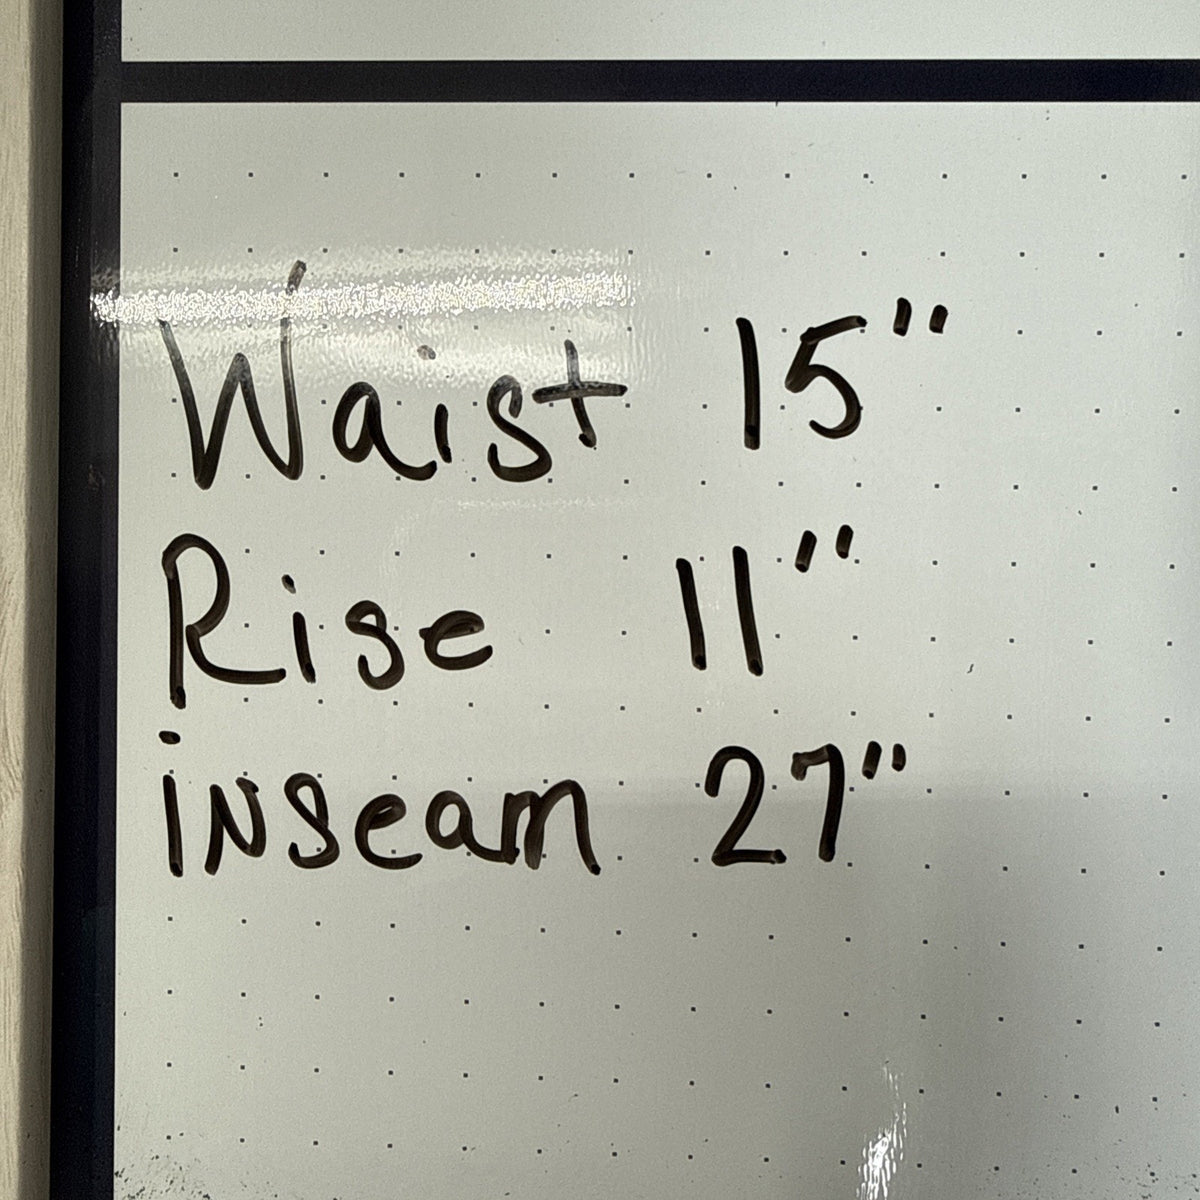 Waist 15"
Rise 11"
inseam 27"